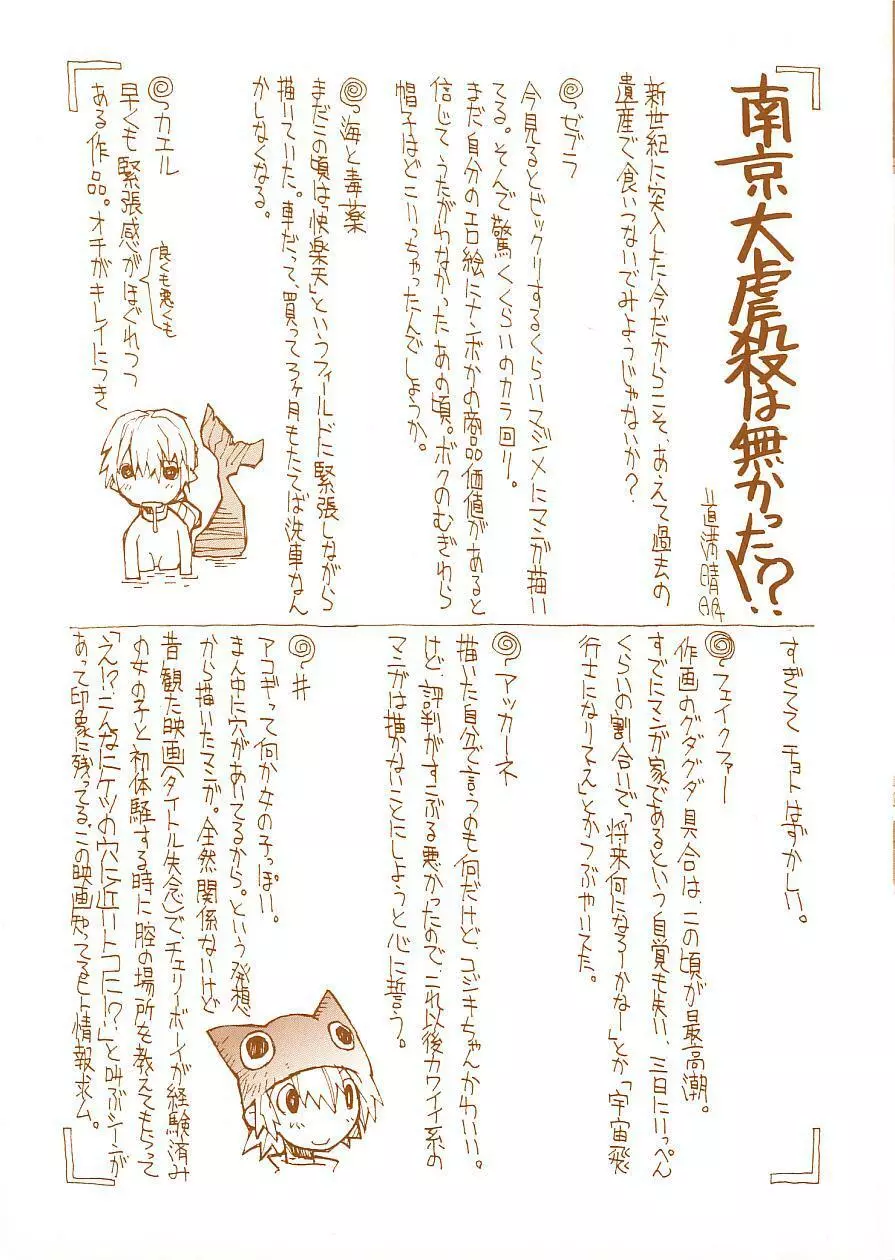 南京大虐殺は無かった!?
道満晴明
新世紀に突入した今だからこそ、あえて過去の
遺産で食いつないでみようじゃないか?
ゼブラ
今見るとビックリするくらいマジメにマンガ描い
てる。そんで驚くくらいのカラ回り。
まだ自分のエロ絵にナンボかの商品価値があると
信じてうたがわなかったあの頃。ボクのむぎわら
帽子はどこいっちゃったんでしょうか。
海と毒薬
まだこの頃は「快楽天」というフィールドに緊張しながら
描いていた。車だって、買って3ヶ月もたてば洗車なん
かしなくなる。
カエル
早くも緊張感がほぐれつつ
良くも悪くも
ある作品。オチがキレイにつき
すぎてて チョトはずかしい。
フェイクファー
作画のグダグダ具合は、この頃が最高潮。
すでにマンガ家であるという自覚も失い、三日にいっぺん
くらいの割合いで「将来何になろーかなー」とか「宇宙飛
行士になりてえ」とかつぶやいてた。
アッカーネ
描いた自分で言うのも何だけど、コジキちゃんかわいい。
けど、評判がすこぶる悪かったので、これ以後カワイイ系の
マンガは描かないことにしようと心に誓う。
#
アコギって何か女の子っぽい。
まん中に穴があいてるから。という発想
から描いたマンガ。全然関係ないけど
昔観た映画(タイトル失念)で、チェリーボーイが経験済み
の女の子と初体験する時に腟の場所を教えてもらって
「え!?こんなにケツの穴に近いトコに!?」と叫ぶシーンが
あって印象に残ってる。この映画知ってるヒト情報求ム。